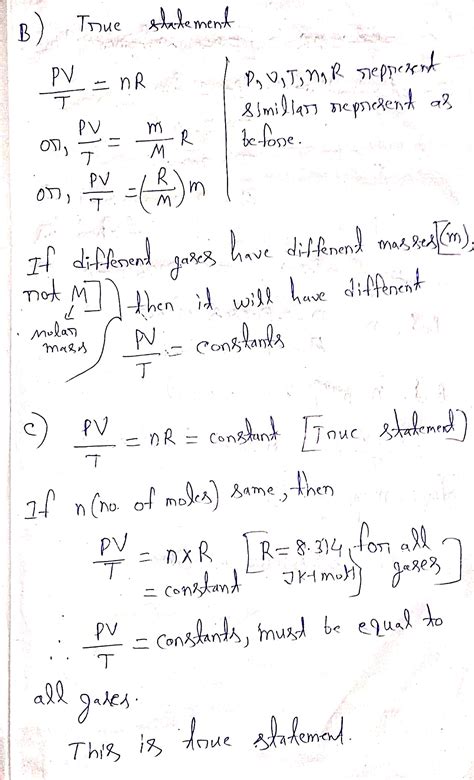 B) True statement
PV/T = nR
or, PV/T = m/M R
or, PV/T = (R/M) m
P, V, T, n, R represent
similiar represent as
before.
If different gases have different masses [(m),
not M] then it will have different
molar
mass
PV/T = constants
c) PV/T = nR = constant [True statement)
If n (no. of moles) same, then
PV/T = n×R [R = 8.314, for all
JK-1 mol-1 gases]
= constant
∴ PV/T = constants, must be equal to
all gases.
This is true statement.